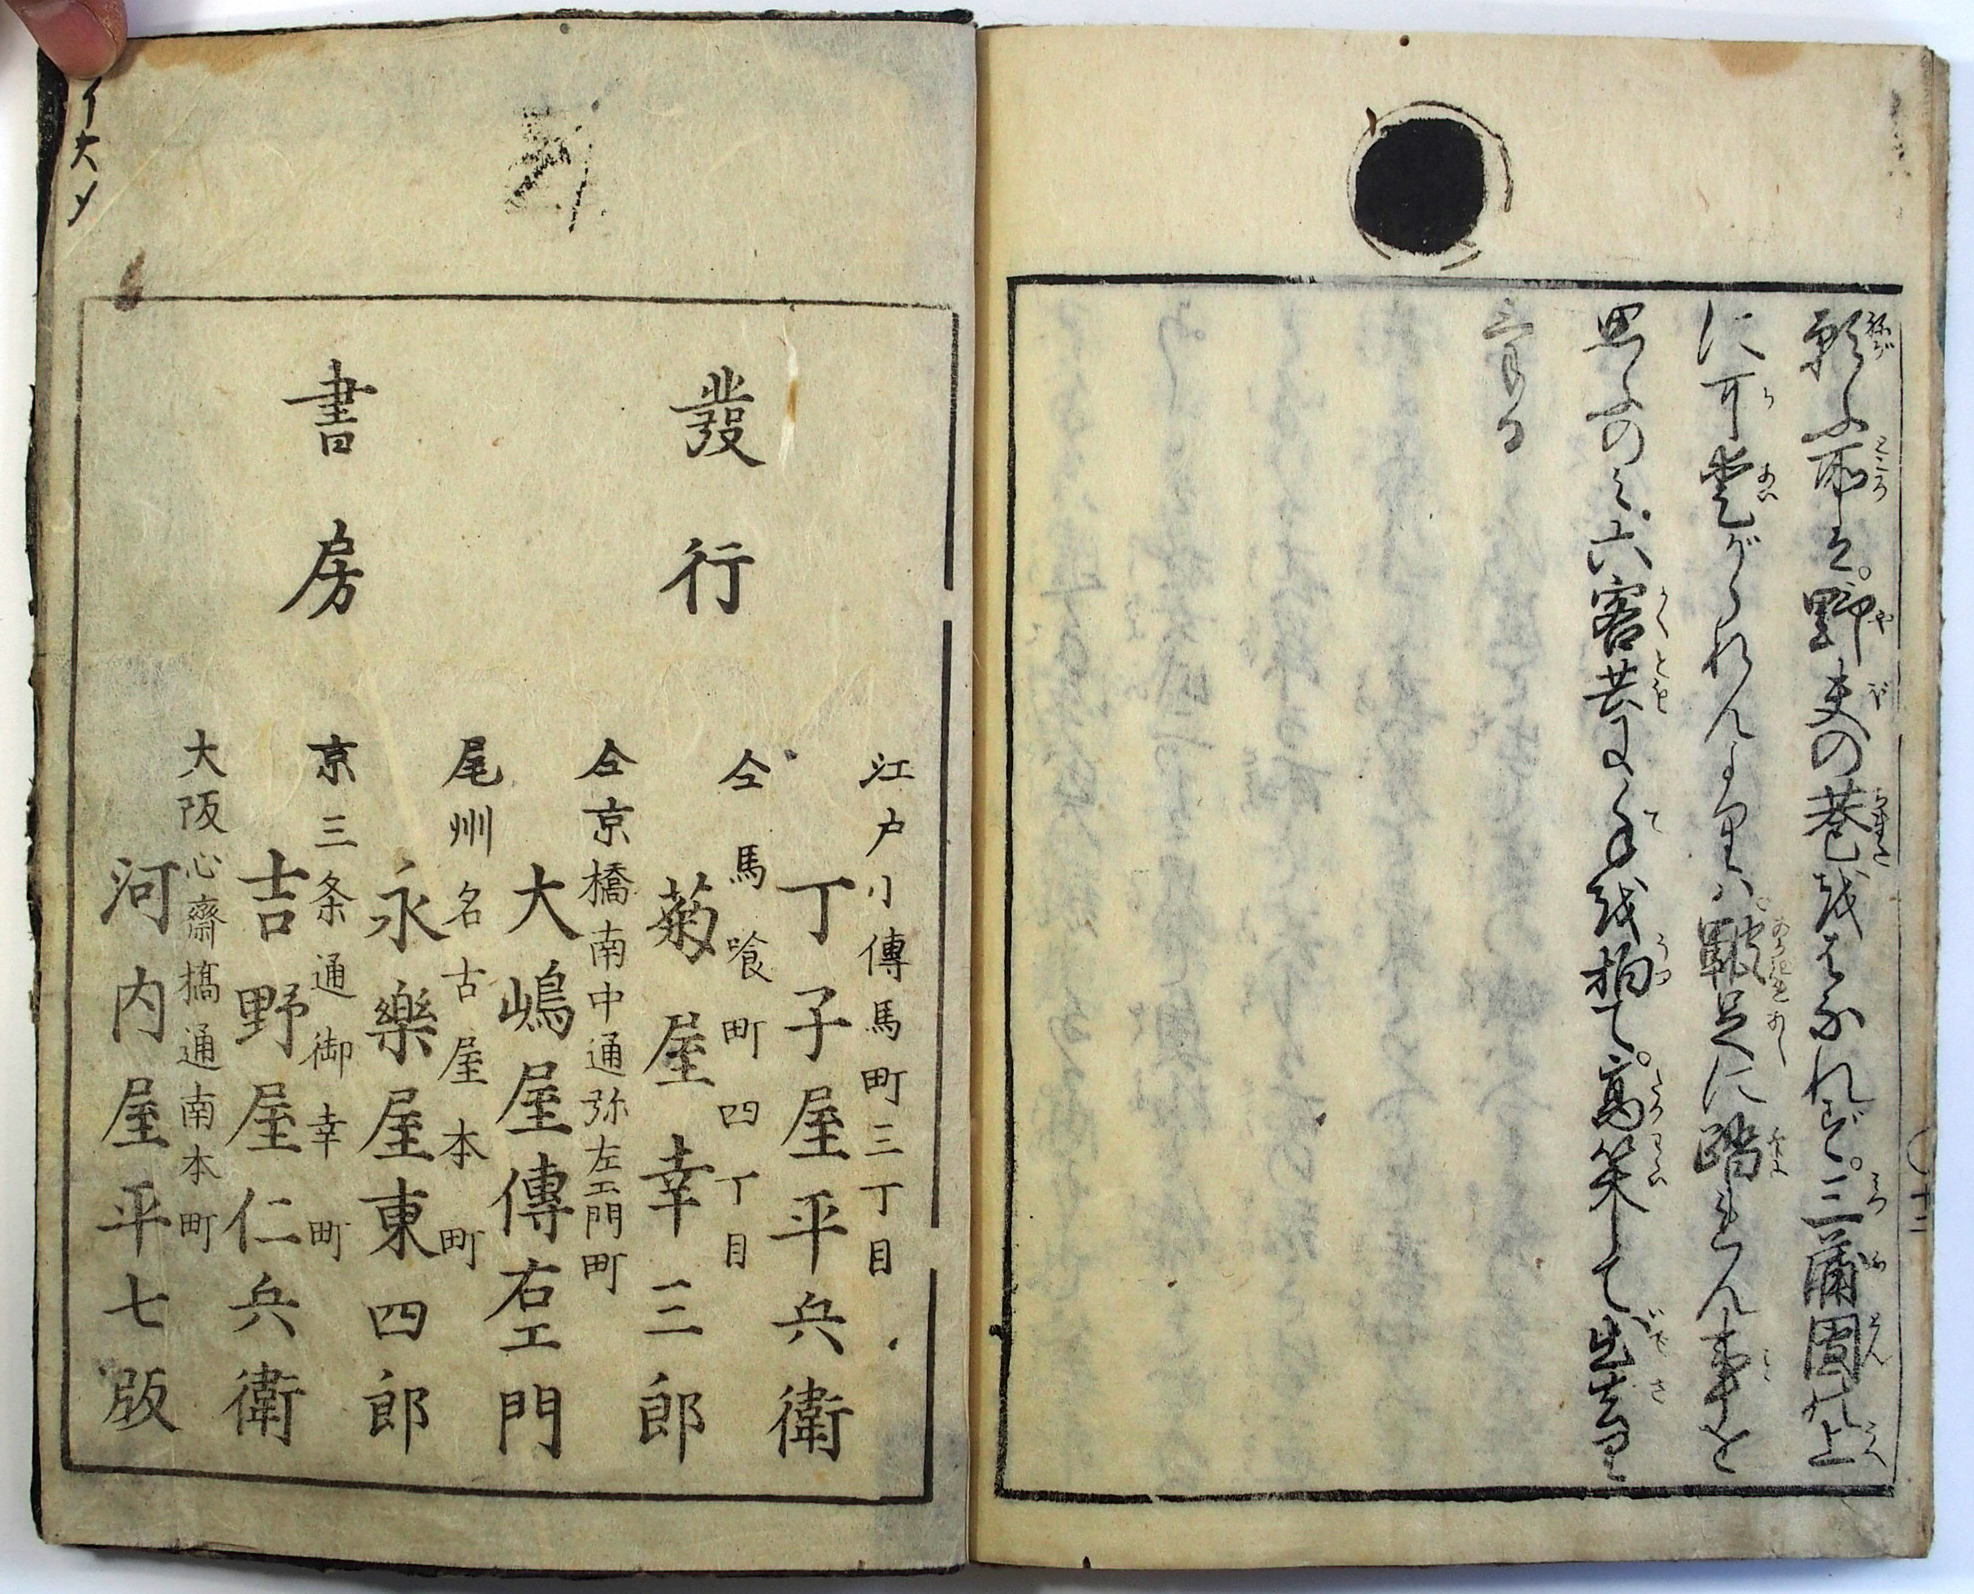 願ふ所は。野夫の巷をはなれず。三蒲団の上
に可愛がられんよりは。皸足に踏れん事を
思ふのみ。六客共に手を拍て。高笑して出去り
けり
發行
書房
江戸小傳馬町三丁目
丁子屋平兵衛
仝馬喰町四丁目
菊屋幸三郎
仝京橋南中通弥左エ門町
大嶋屋傳右エ門
尾州名古屋本町
永樂屋東四郎
京三条通御幸町
吉野屋仁兵衛
大阪心齋橋通南本町
河内屋平七版